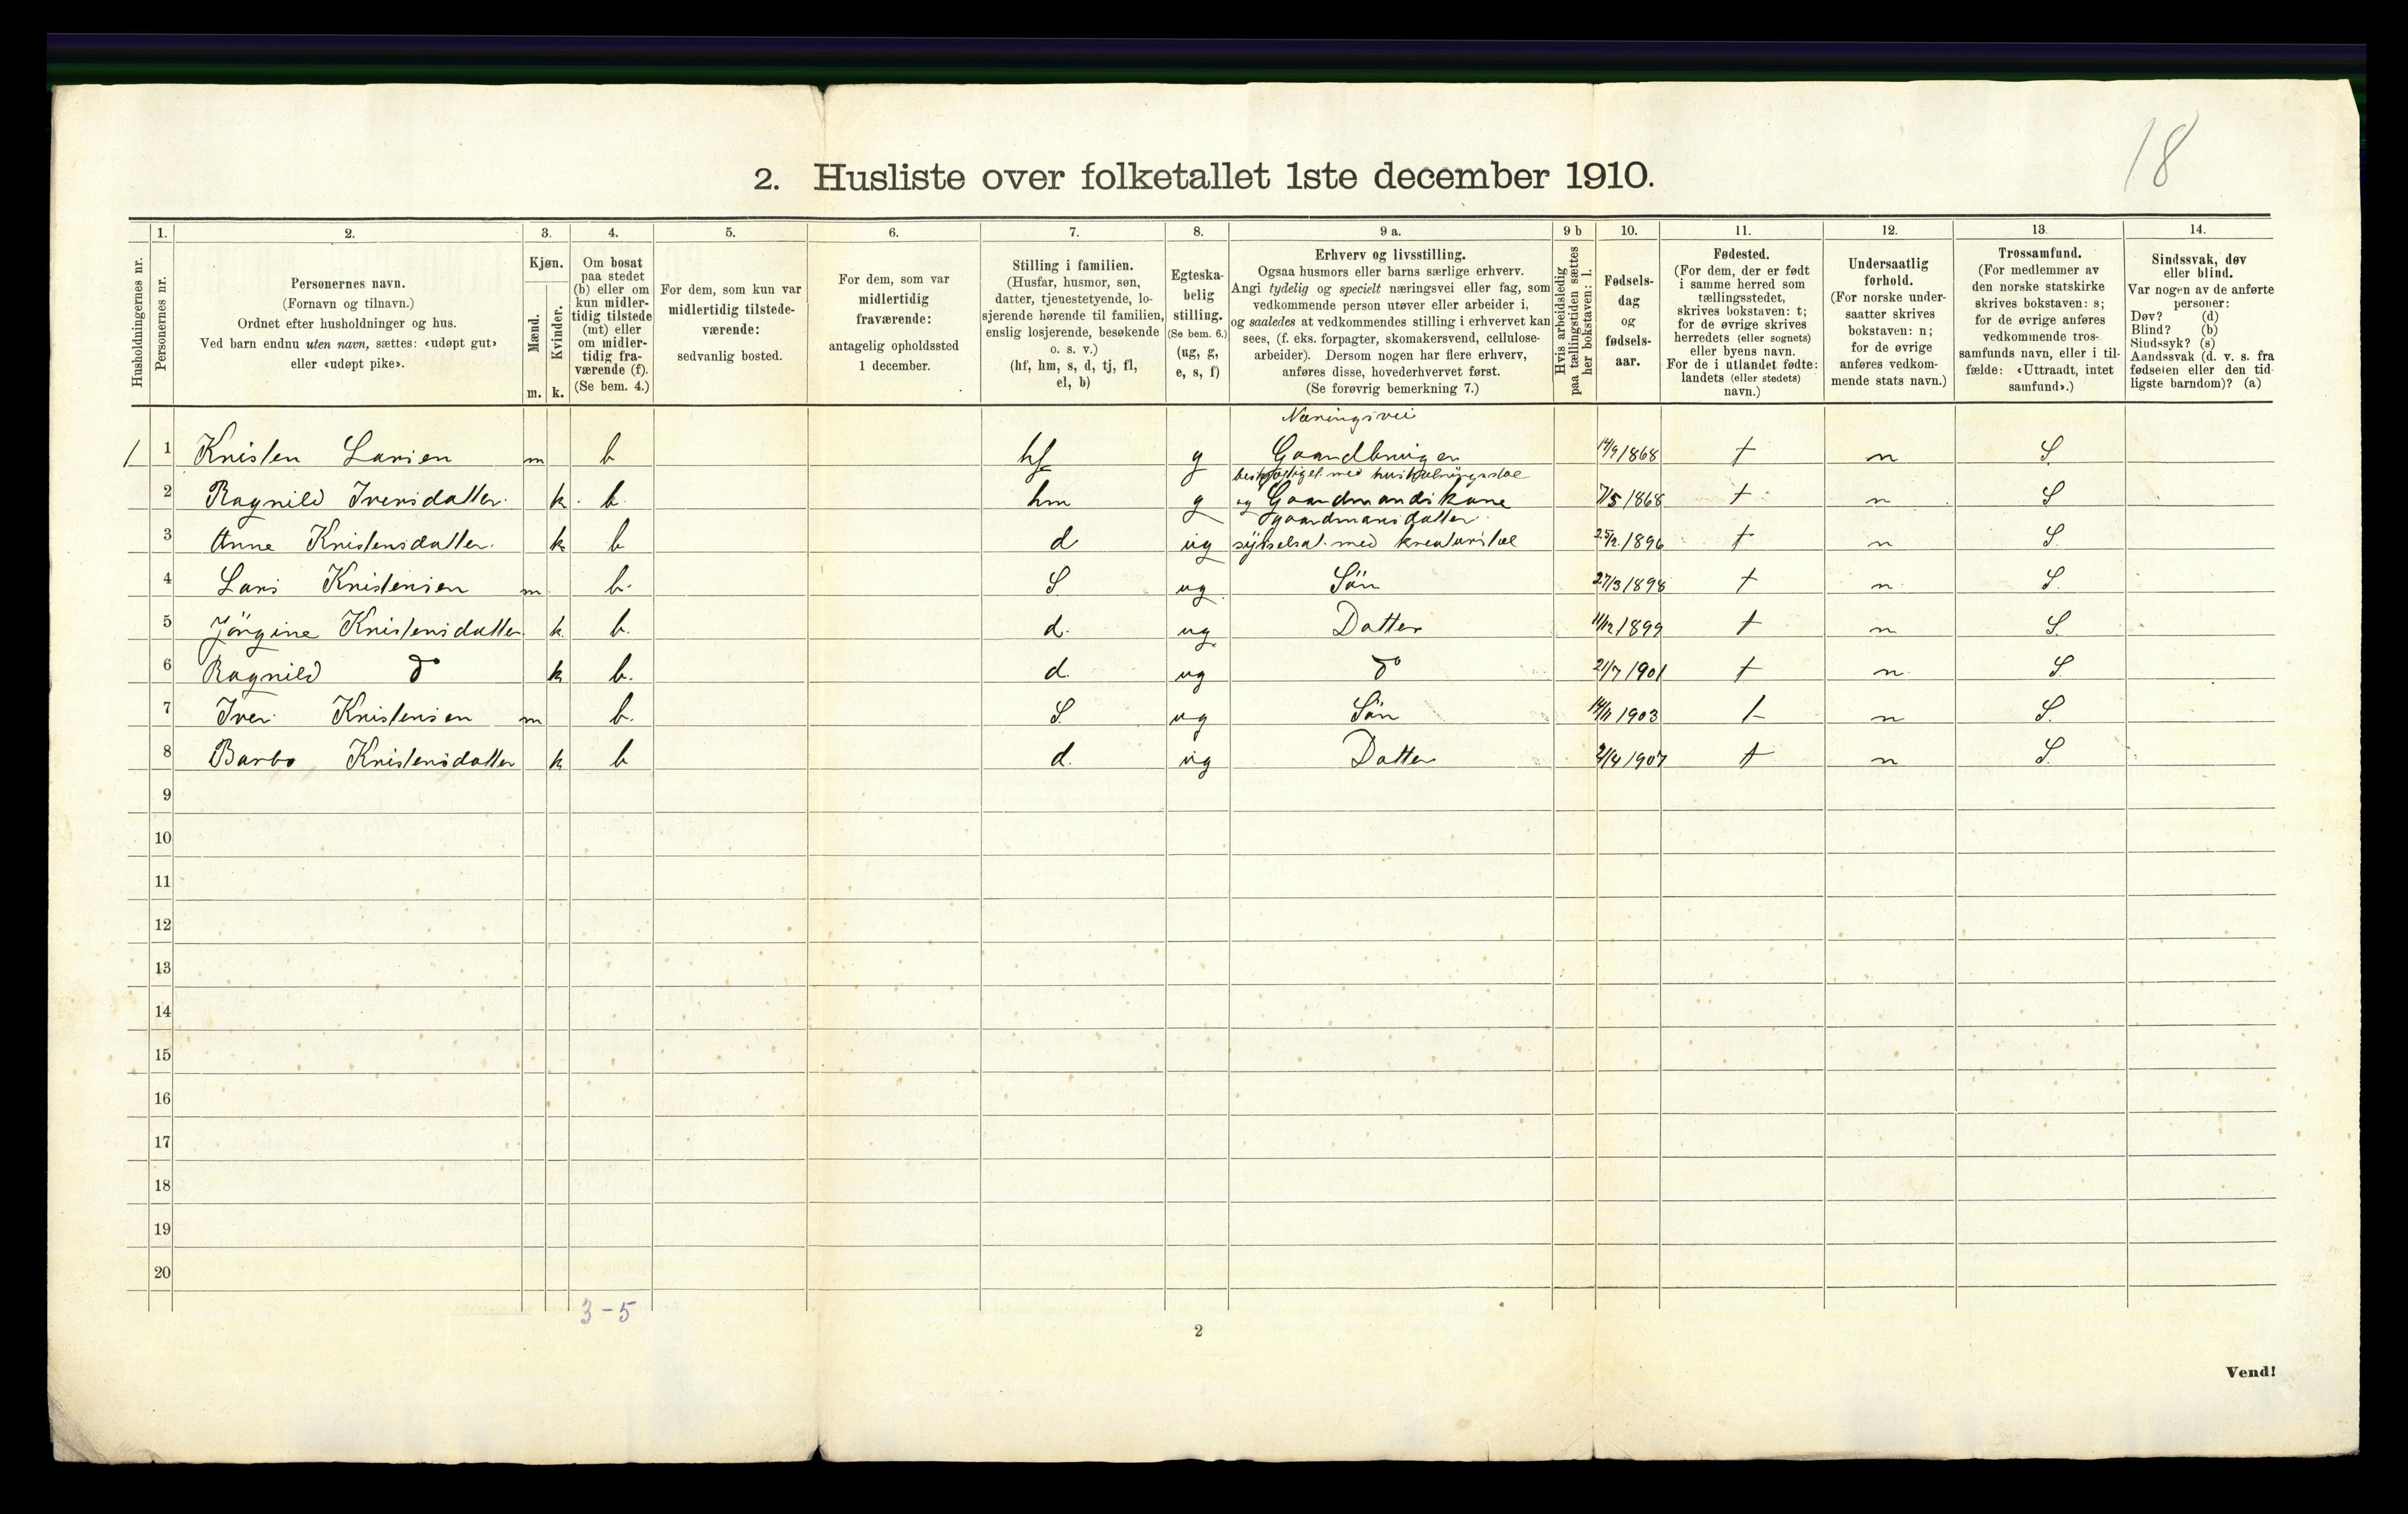 18
2. Husliste over folketallet 1ste december 1910.
Husholdningernes nr.
1.
Personernes nr.
2.
Personernes navn.
(Fornavn og tilnavn.)
Ordnet efter husholdninger og hus.
Ved barn endnu uten navn, sættes: «udøpt gut»
eller «udøpt pike».
3.
Kjøn.
Mænd.
Kvinder.
m. k.
4.
Om bosat
paa stedet
(b) eller om
kun midler-
tidig tilstede
(mt) eller
om midler-
tidig fra-
værende (f).
(Se bem. 4.)
5.
For dem, som kun var
midlertidig tilstede-
værende:
sedvanlig bosted.
6.
For dem, som var
midlertidig
fraværende:
antagelig opholdssted
1 december.
7.
Stilling i familien.
(Husfar, husmor, søn,
datter, tjenestetyende, lo-
sjerende hørende til familien,
enslig losjerende, besøkende
o. s. v.)
(hf, hm, s, d, tj, fl,
el, b)
8.
Egteska-
belig
stilling.
(Se bem. 6.)
(ug, g,
e, s, f)
9 a.
Erhverv og livsstilling.
Ogsaa husmors eller barns særlige erhverv.
Angi tydelig og specielt næringsvei eller fag, som
vedkommende person utøver eller arbeider i,
og saaledes at vedkommendes stilling i erhvervet kan
sees, (f. eks. forpagter, skomakersvend, cellulose-
arbeider). Dersom nogen har flere erhverv,
anføres disse, hovederhvervet først.
(Se forøvrig bemerkning 7.)
9 b
Hvis arbeidsledig
paa tællingstiden sættes
her bokstaven: l.
10.
Fødsels-
dag
og
fødsels-
aar.
11.
Fødested.
(For dem, der er født
i samme herred som
tællingsstedet,
skrives bokstaven: t;
for de øvrige skrives
herredets (eller sognets)
eller byens navn.
For de i utlandet fødte:
landets (eller stedets)
navn.)
12.
Undersaatlig
forhold.
(For norske under-
saatter skrives
bokstaven: n;
for de øvrige
anføres vedkom-
mende stats navn.)
13.
Trossamfund.
(For medlemmer av
den norske statskirke
skrives bokstaven: s;
for de øvrige anføres
vedkommende tros-
samfunds navn, eller i til-
fælde: «Uttraadt, intet
samfund».)
14.
Sindssvak, døv
eller blind.
Var nogen av de anførte
personer:
Døv? (d)
Blind? (b)
Sindssyk? (s)
Aandssvak (d. v. s. fra
fødselen eller den tid-
ligste barndom)? (a)
Næringsvei
1 1 Kristen Larsen m b hf g Gaardbruger 14/9 1868 t n S.
2 Ragnild Iversdatter. k. b. hm g og Gaardmandskone 7/5 1868 t n S
gaardmansdatter
3 Anne Kristensdatter. k b d ug sysselsat. med kreaturstel 1896 t n S.
4 Lars Kristensen m b. S ug Sön 27/3 1898 t n. S.
5 Jörgine Kristensdatter k b. d. ug Datter 11/12 1899 t n S.
6 Ragnild do k b. d. ug do 21/7 1901 t n. S.
7 Iver Kristensen m b. S. ug Sön 14/11 1903 t n S.
8 Barbo Kristensdatter k b d. ug Datter 1907 t n S.
9
10
11
12
13
14
15
16
17
18
19
20
3-5
2
Vend!